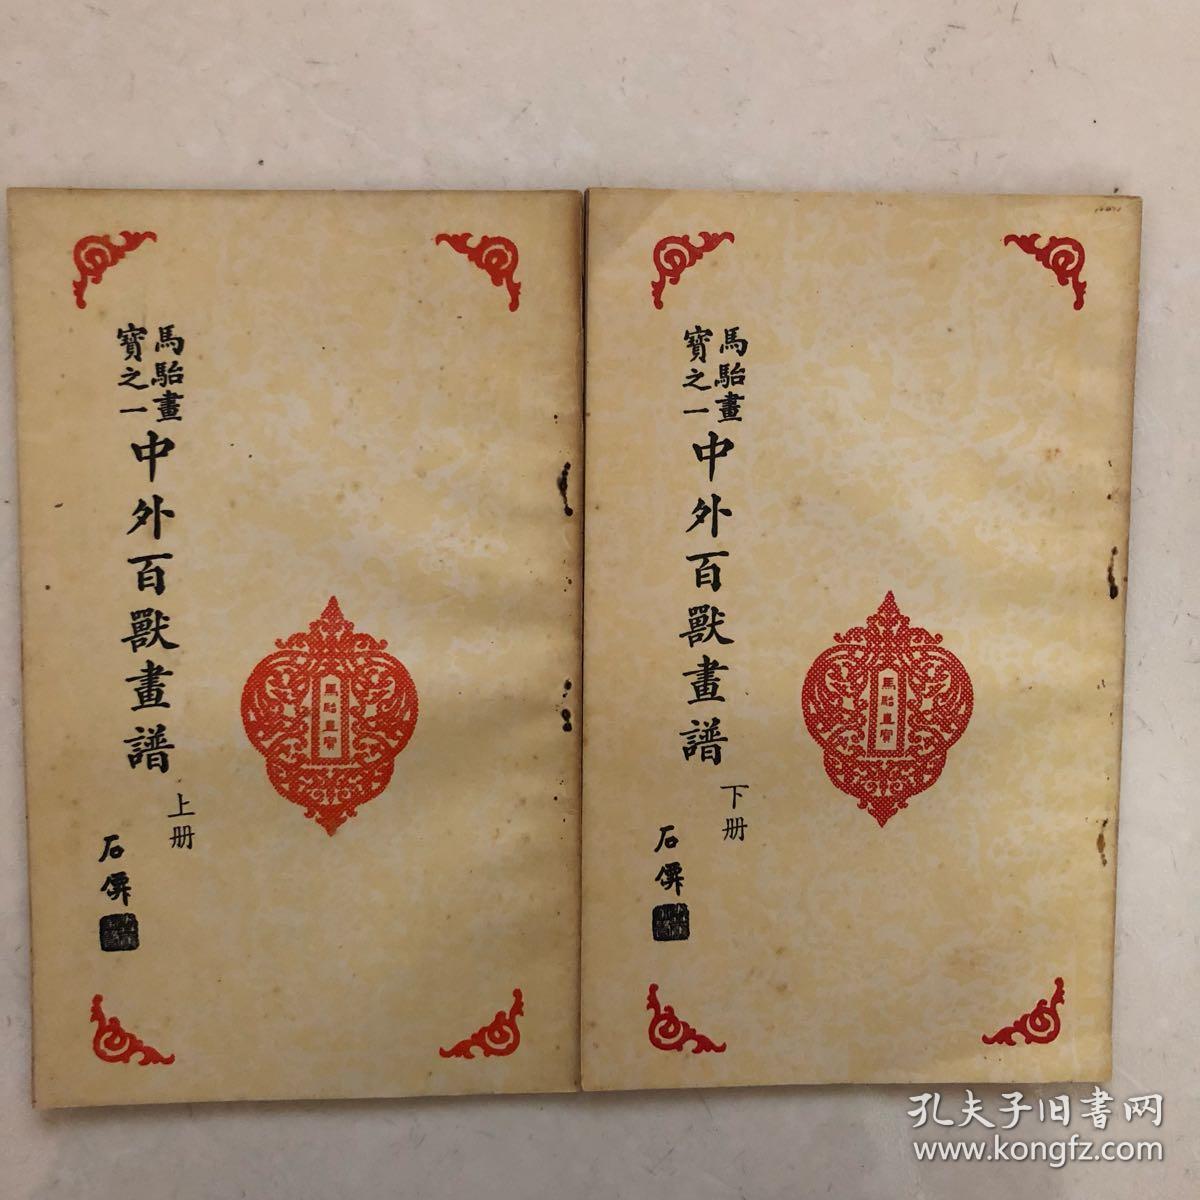 馬駘畫
寶之一
中外百獸畫譜
上册
石僲
馬駘畫寶
馬駘畫
寶之一
中外百獸畫譜
下册
石僲
馬駘畫寶
孔夫子旧書网
www.kongfz.com